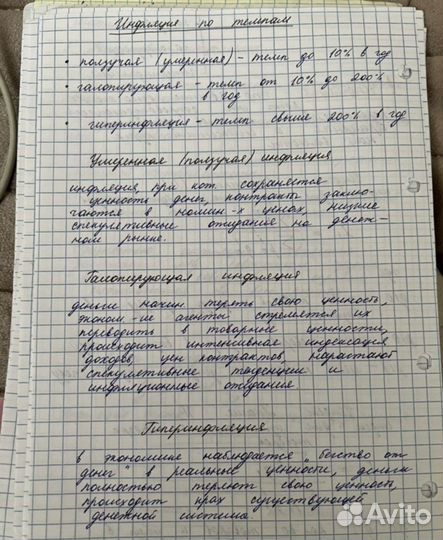 Инфляция по темпам
• ползучая (умеренная) – темп до 10% в год
• галопирующая – темп от 10% до 200%
в год
• гиперинфляция – темп свыше 200% в год
Умеренная (ползучая) инфляция
инфляция, при кот. сохраняется
ценность денег, контракты заклю-
чаются в номин-х ценах, низкие
спекулятивные ожидания на денеж-
ном рынке.
Галопирующая инфляция
деньги начин. терять свою ценность,
эконом-ие агенты стремятся их
переводить в товарные ценности,
происходит интенсивная индексация
доходов, цен контрактов, нарастают
спекулятивные тенденции и
инфляционные ожидания
Гиперинфляция
в экономике наблюдается "бегство от
денег" в реальные ценности, деньги
полностью теряют свою ценность,
происходит крах существующей
денежной системы
Avito